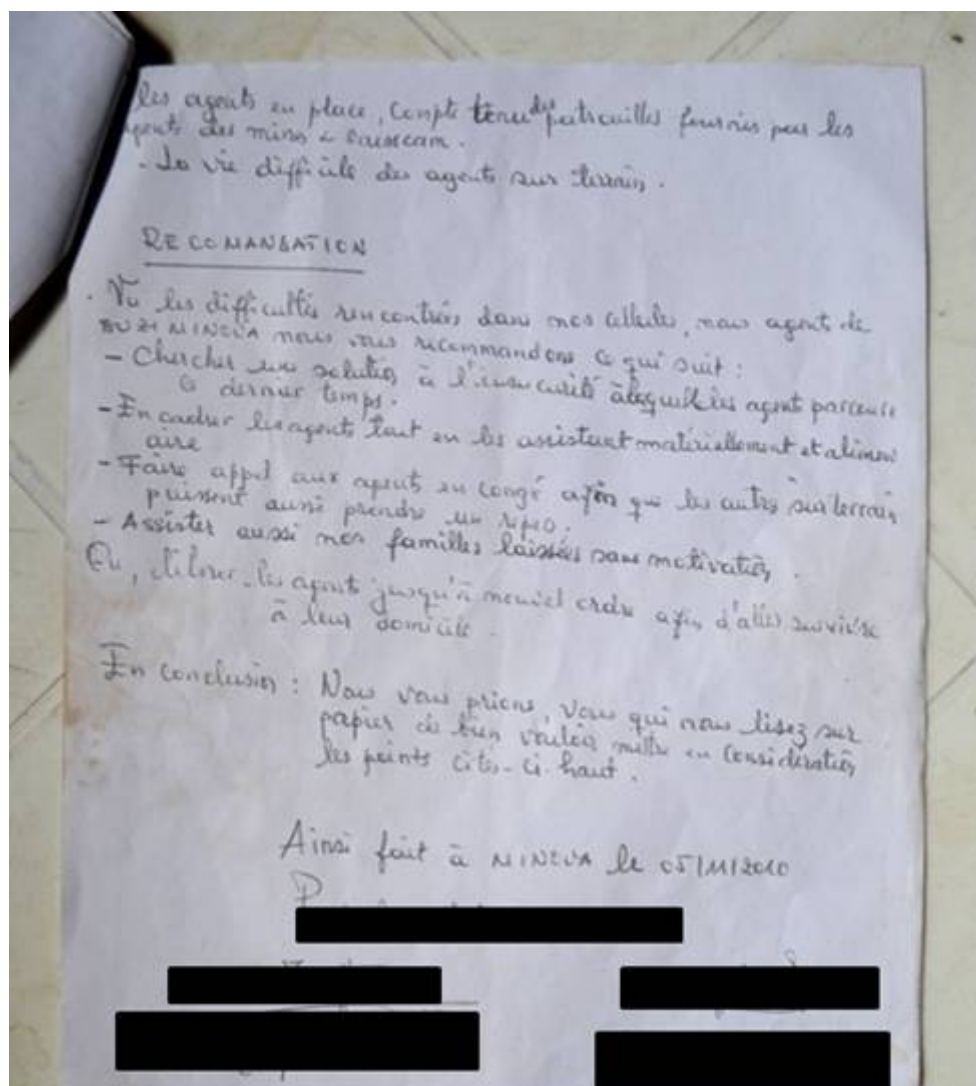 les agents en place, compte tenu des patrouilles fournies par les
agents des mines
- La vie difficile des agents sur terrain.
RECOMANDATION
. Vu les difficultés rencontrées dans nos cellules, nous agent de
BUZI NINEVA nous vous recommandons ce qui suit :
- Chercher une solution à l'insecurité àlaquelle les agent parcourt
ce dernier temps.
- Encadrer les agents tout en les assistant matériellement et alimen
aire
- Faire appel aux agents en congé afin que les autres sur terrain
puissent aussi prendre un repos.
- Assister aussi nos familles laissées sans motivation.
Ou, libérer les agent jusqu'à nouvel ordre afin d'aller survivre
à leur domicile.
En conclusion : Nous vous prions, vous qui nous lisez sur
papier de bien vouloir mettre en consideration
les points cités-ci-haut.
Ainsi fait à NINEVA le 05/11/2010